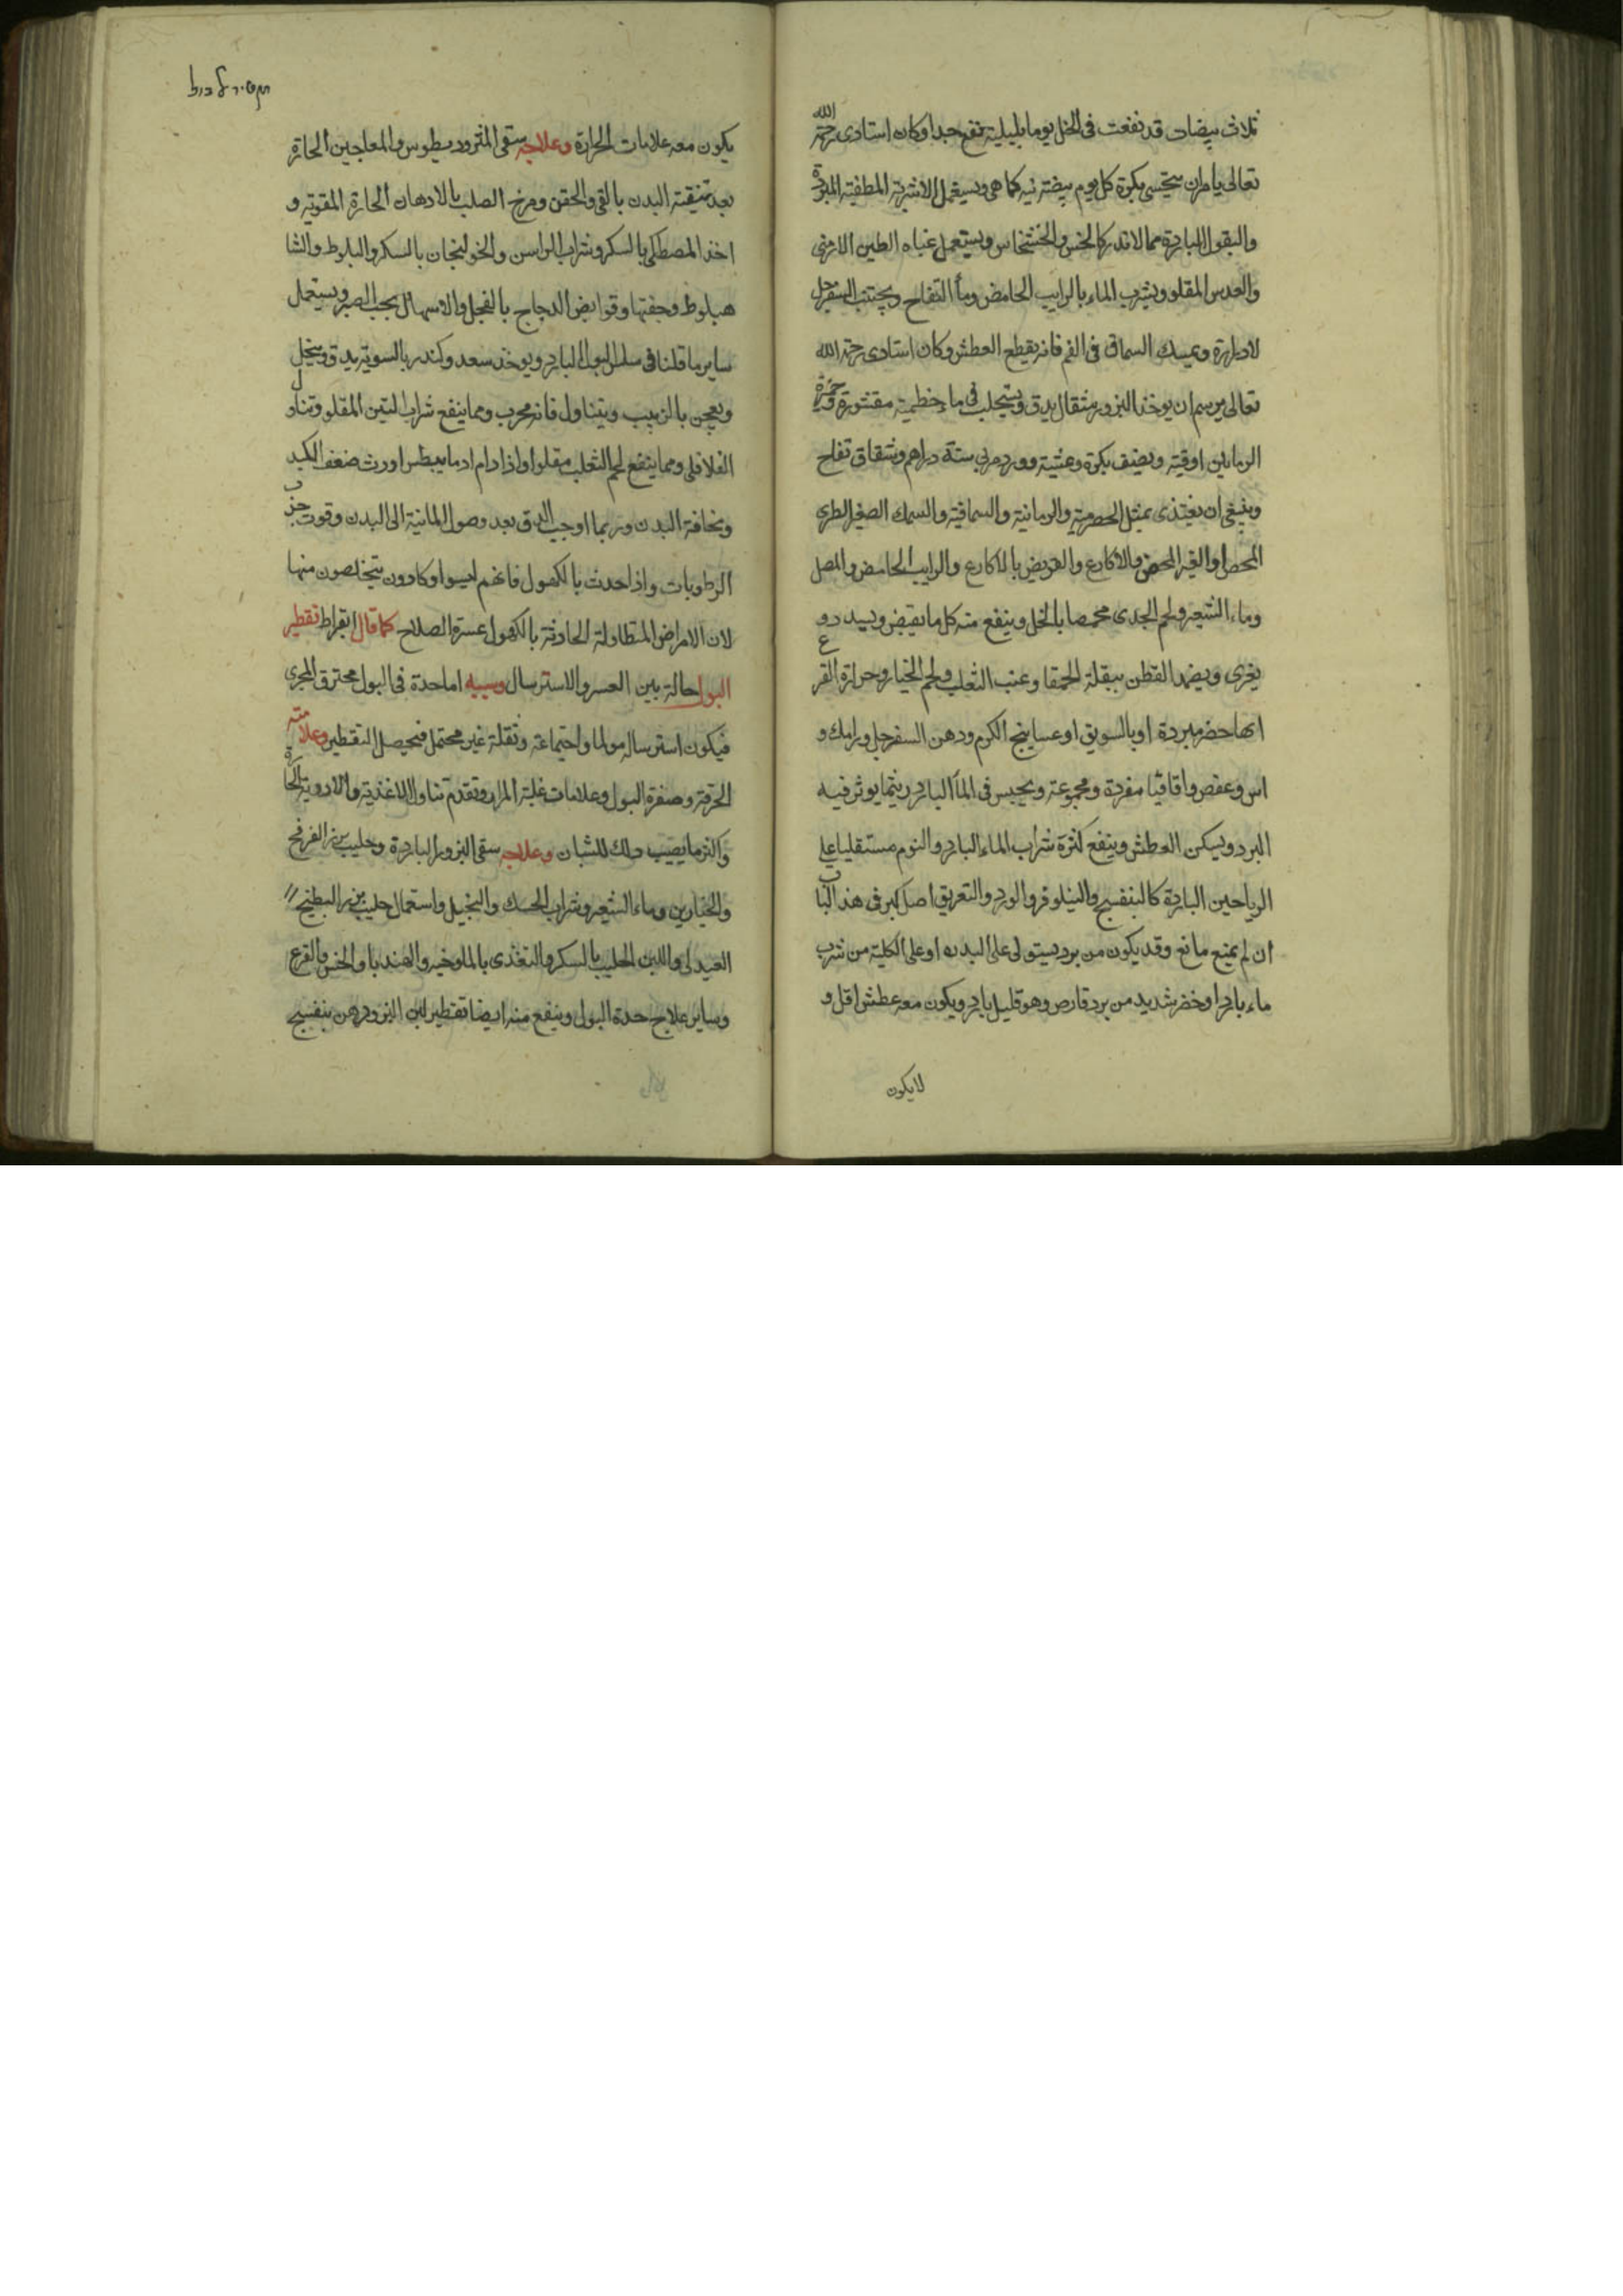 ثلاث بيضات قد نفعت فى الخل يوما بليلة نفع جدا وكان استادى رحمة الله
تعالى يامر ان يتحسى بكرة كل يوم بيضة نيه كما هى ويستعمل الاشربة المطفئة المبردة
والبقول الباردة مما لا تدر كالخس والخشخاش ويستعمل غباه الطين الارمنى
والعدس المقلو ويشرب الماء بالرايب الحامض وماأ التفاح ويجتنب السفرجل
لادراره ويمسك السماق فى الفم فانه يقطع العطش وكان استادى رحمة الله
تعالى يرسم ان يوخذ البزور مثقال يدق ويستحلب فى ماء خطمية مقشورة وخمرة
الرمانين اوقية ويضيف بكرة وعشية وورد مربى ستة دراهم وشقاق تفاح
وينبغى ان يغتذى بمثل الحصرمية والرمانية والسماقية والسمك الصغير الطرى
المحمض او القير المحمض والاكارع والقريض بالاكارع والرايب الحامض والمصل
وماء الشعير ولحم الجدى محمصا بالخل وينفع منه كل ما يقبض ويسدد و
يغرى ويضمد القطن ببقلة الحمقا وعنب الثعلب ولحم الخيار وجرادة القرع
ايها حضر مبردة او بالسويق او عساليج الكرم ودهن السفرجل ورامك و
اس وعفص واقاقيا مفردة ومجموعة ويجلس فى الماأ البارد ريثما يوثر فيه
البرد ويسكن العطش وينفع كثرة شراب الماء البارد والنوم مستقليا على
الرياحين الباردة كالبنفسج والنيلوفر والورد والتعريق اصل كبر فى هذا الباب
ان لم يمنع مانع وقد يكون من برد يستولى على البدن او على الكلية من شرب
ماء باردا وخضر شديد من برد قارص وهو قليل بارد ويكون معه عطش اقل و
لا يكون
يكون معه علامات الحرارة وعلاجه سقى المثروديطوس والمعاجين الحارة
بعد تنيقة البدن بالقى والحقن ومرخ الصلب بالادهان الحارة المقوية و
اخذ المصطكى بالسكر وشراب الراسن والخولنجان بالسكر والبلوط والشا
هبلوط وجفتها وقوابض الدجاج بالفجل والاسهال بحب الصبر ويستعمل
ساير ما قلنا فى سلسل البول البارد ويوخذ سعد وكندر بالسوية يدق وينخل
ويعجن بالزبيب ويتناول فانه مجرب ومما ينفع شراب التين المقلو وتناول
الفلافلى ومما ينفع لحم الثعلب مقلوا واذا دام ادما بيطس اورث ضعف الكبد
ونحافة البدن وربما اوجب الدق بعد وصول المائية الى البدن وقوت جذب
الرطوبات واذا حدث بالكهول فانهم ليسوا وكادون يتخلصون منها
لان الامراض المتطاولة الحادثة بالكهول عسرة الصلاح كما قال ابقراط تقطير
البول حالة بين العسر والاسترسال وسببه اما حدة فى البول محترق المجرى
فيكون استرساله مولما واجتماعه وثقله غير محتمل فيحصل التقطير وعلامته
الحرقة وصفرة البول وعلامات غلبة المرار وتقدم تناول الاغذية والادوية الحارة
واكثر ما يصيب ذلك للشبان وعلاجه سقى البزور الباردة وحليب بزر الفرفح
والخيارين وماء الشعير وشراب الحسك والنجيل واستعمال حليب بزر البطيخ
العبدلى واللبن الحليب بالسكر والتغذى بالملوخيه والهندبا والخس والقرع
وساير علاج حدة البول وينفع منه ايضا تقطير لبن البزور دهن بنفسج